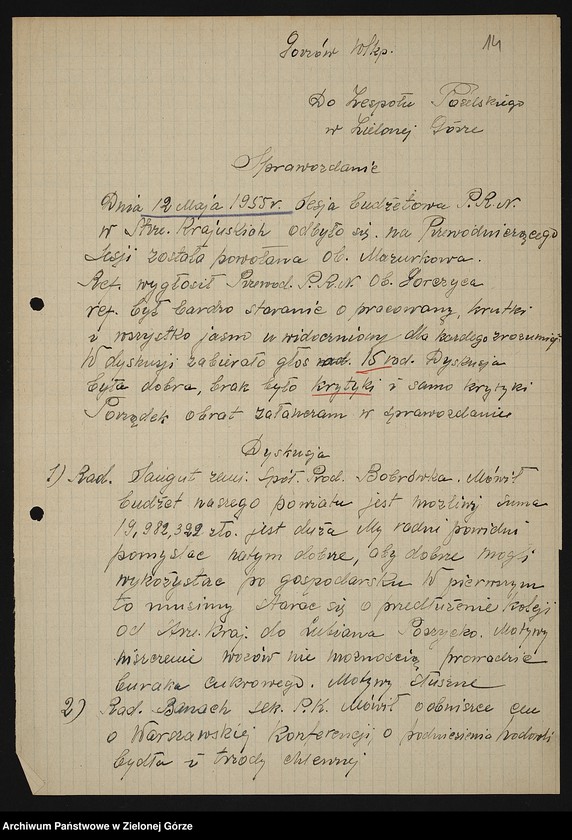 14
Gorzów Wlkp.
Do Zespołu Poselskiego
w Zielonej Górze
Sprawozdanie
Dnia 12 Maja 1955 r. Sesja budżetowa P.R.N.
w Strz. Krajuskich odbyło się. na Przewodniczącego
Sesji została powołana Ob. Mazurkowa.
Ref. wygłosił Przewod. P.R.N. Ob. Gorczyca
ref. był bardzo staranie o pracowany, krutki
i wszystko jasno u widoczniony dla każdego zrozumiały
W dyskusji zabierało głos rad. 15 rad. Dyskusja
była dobra, brak było krytyki i samo krytyki
Porządek obrat załanczam w sprawozdanie
Dyskusja
1) Rad. ziemi. Spół. Prod. Bobrówka. Mówił
budżet naszego powiatu jest możliwy suma
19,982,322 zło. jest duża My radni powidni
pomyśleć natym dobrze, aby dobrze mogli
wykożystać po gospodarsku W pierwszym
to musimy starać się o przedłużenie koleji
od Strz. Kraj. do Lubiana Motywy
niszczenie wozów nie możnością prowadzić
buraka cukrowego. Motywy słuszne
2) Rad. Banach sek. P.K. Mówił
o Warszawskiej Konferencji, o podniesienia hodowli
bydła i trzody chlewnej
Archiwum Państwowe w Zielonej Górze